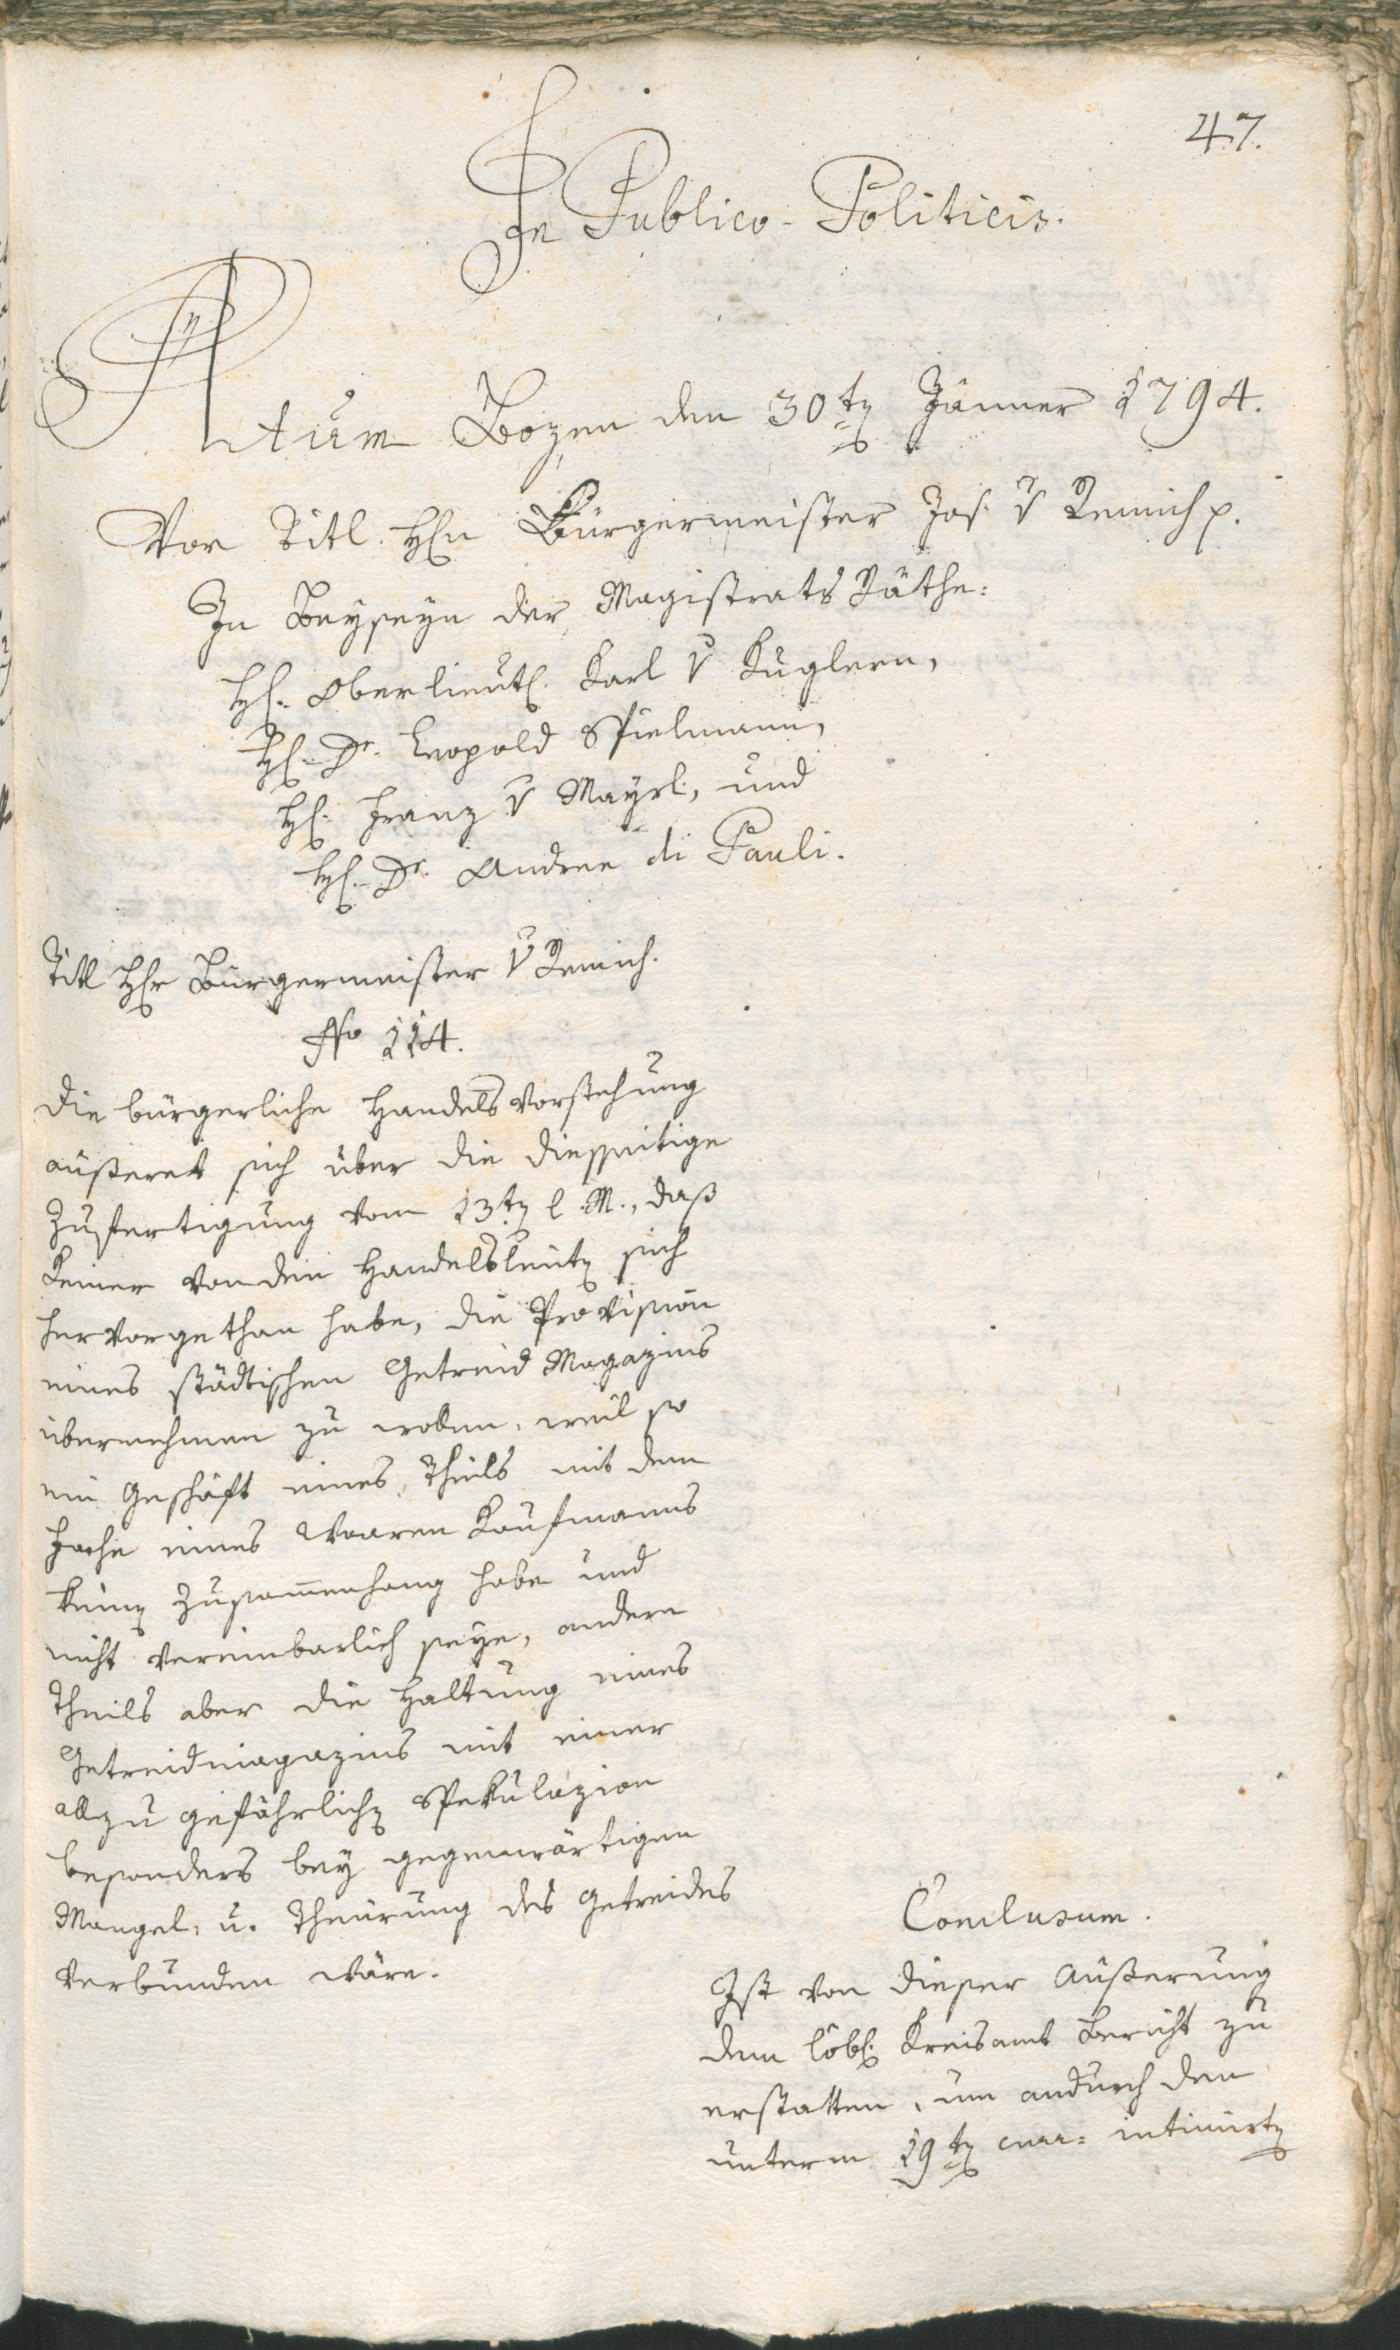 47.
In Publico-Politicis.
Actum Bozen den 30ten Jänner 1794.
Vor Titl. Hrn Bürgermeister Jos. v Remich p.
In Beyseyn der Magistrats Räthe:
Hr. Oberlieut. Karl v Kuglern,
Hr. Dr. Leopold Spielmann,
Hr. Franz v Mayrl, und
Hr. Dr. Andree di Pauli.
Titl Hr Bürgermeister v Remich.
No 114.
Die bürgerliche Handels Vorstehung
äußeret sich über die diesseitige
Zufertigung vom 13ten l. M., daß
keiner von den Handelsleuten sich
hervorgethan habe, die Provision
eines städtischen Getreid Magazins
übernehmen zu wollen, weil so
ein Geschäft eines Theils mit dem
Fache eines Waaren Kaufmanns
keinen Zusammenhang habe und
nicht vereinbarlich seye, andern
Theils aber die Haltung eines
Getreidmagazins mit einer
allzu gefährlichen Spekulazion
besonders bey gegenwärtigen
Mangel, u. Theurung des Getreides
verbunden wäre.
Conclusum.
Ist von dieser Äußerung
dem löbl. Kreisamt Bericht zu
erstatten, um andurch den
unterm 19ten curr. intimirten